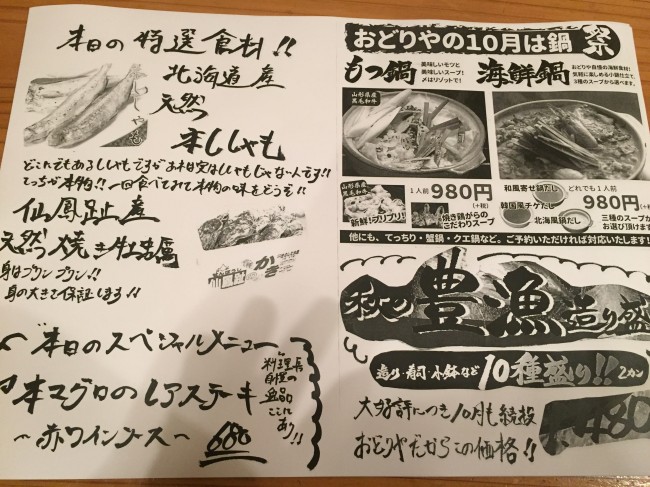 本日の特選食材!!
北海道産
天然
本ししゃも
どこにでもあるししゃもですが
こっちが本物!!一回食べてみて本物の味をどうぞ!!
仙鳳趾産
天然焼き牡蠣
かき
身はプリンプリン!!
身の大きさ保証します!!
本日のスペシャルメニュー
本マグロのレアステーキ
〜赤ワインソース〜 680
料理長
自慢の
逸品
ここに
あり!!
おどりやの10月は鍋祭
もつ鍋
美味しいモツと
美味しいスープ!
〆はリゾットで!
海鮮鍋
おどりや自慢の海鮮食材!
気軽に楽しめる小鍋仕立て、
3種のスープから選べます。
山形県産
黒毛和牛
山形県産
黒毛和牛
新鮮!プリプリ!
1人前 980円
(+税)
焼き鶏がらの
こだわりスープ
和風寄せ鍋だし
韓国風チゲだし
北海風鍋だし
どれでも1人前
980円
(+税)
三種のスープから
お選び頂けます
他にも、てっちり・蟹鍋・クエ鍋など。ご予約いただければ対応いたします!
秋の豊漁造り盛
造り・寿司・小鉢など 10種盛り!! 2カン
大好評につき10月も続投
おどりやだからこの価格!!
480